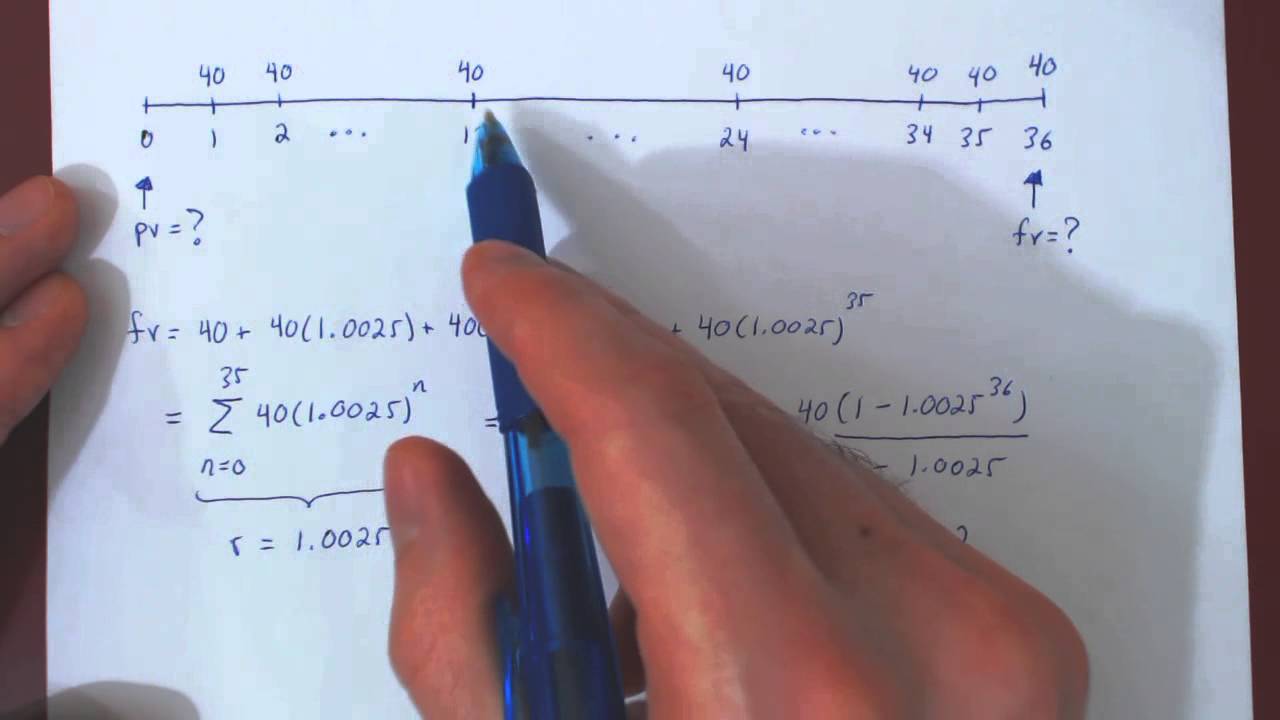 40 40 40 40 40 40 40
0 1 2 ... 1 ... 24 ... 34 35 36
pv = ? fv = ?
fv = 40 + 40(1.0025) + 40( + 40(1.0025)^35
= 35 Σ n=0 40(1.0025)^n = 40(1 - 1.0025^36) / - 1.0025
r = 1.0025 2